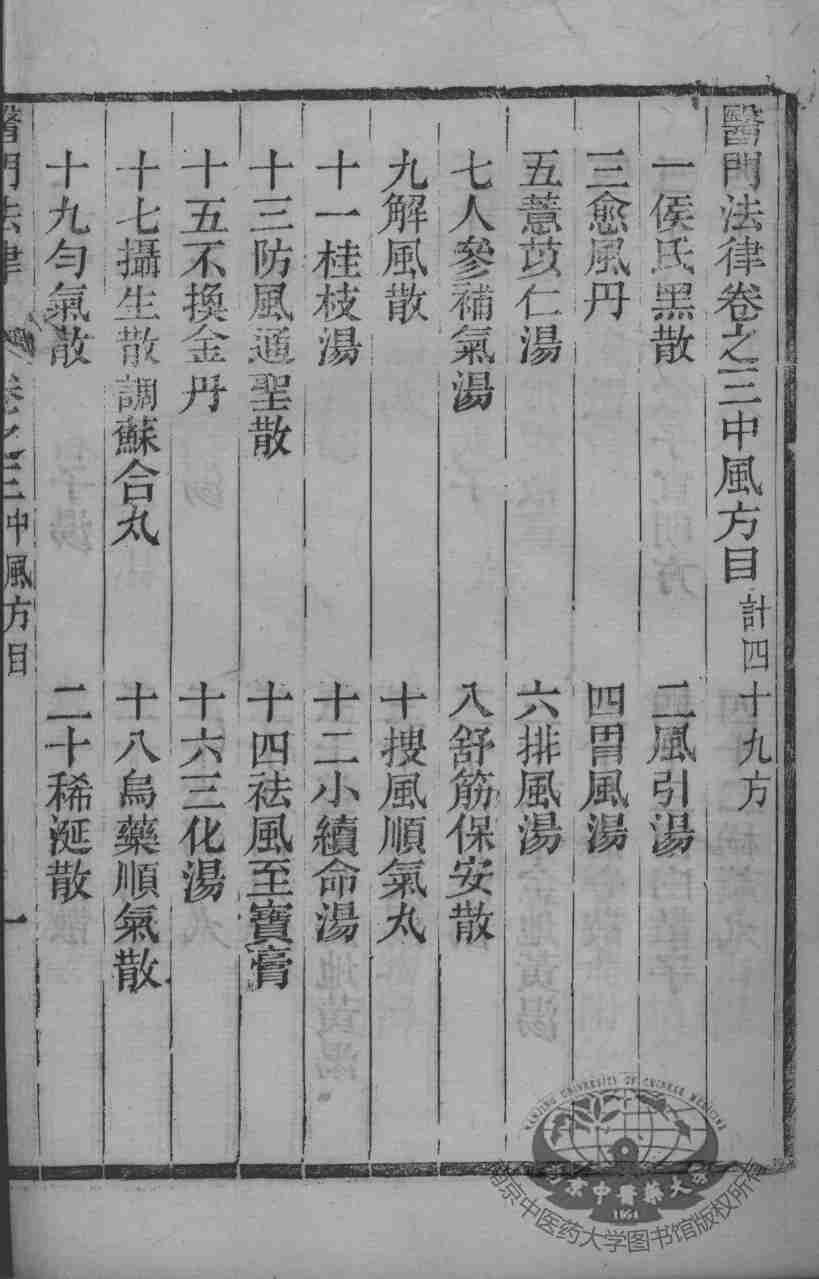 醫門法律卷之三中風方目 計四十九方
一侯氏黑散 二風引湯
三愈風丹 四胃風湯
五薏苡仁湯 六排風湯
七人參補氣湯 八舒筋保安散
九解風散 十搜風順氣丸
十一桂枝湯 十二小續命湯
十三防風通聖散 十四祛風至寶膏
十五不換金丹 十六三化湯
十七攝生散調蘇合丸 十八烏藥順氣散
十九勻氣散 二十稀涎散
醫門法律 卷之三中風方目 一
NANJING UNIVERSITY OF CHINESE MEDICINE
南京中醫藥大學
1954
南京中医药大学图书馆版权所有